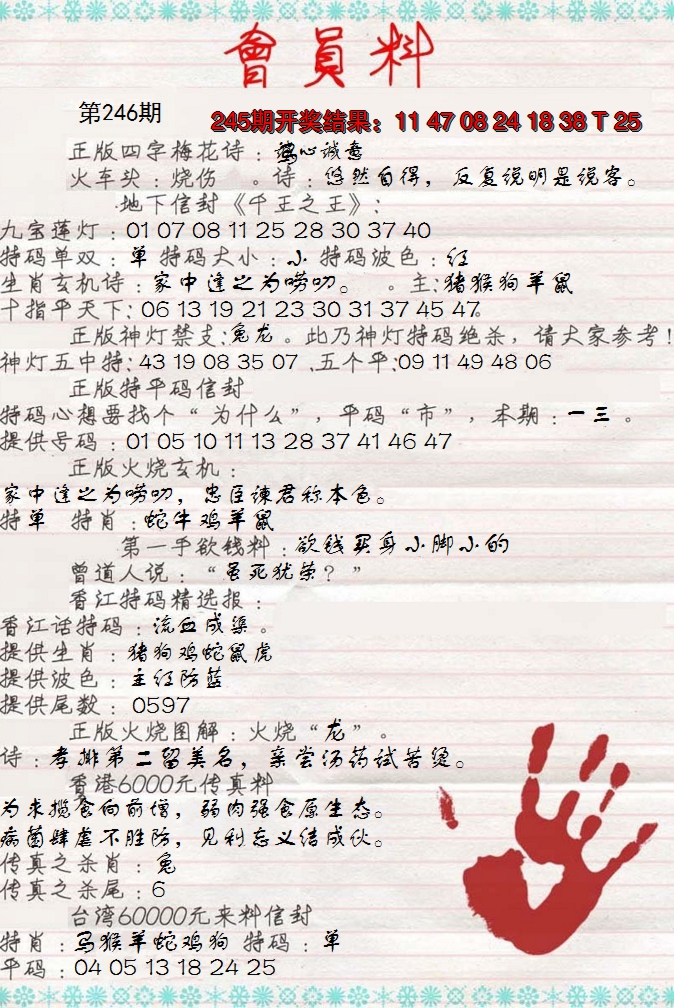 會員料
第246期
245期开奖结果：11 47 08 24 18 38 T 25
正版四字梅花诗：诚心诚意
火车头：烧伤 。诗：悠然自得，反复说明是说客。
地下信封《千王之王》：
九宝莲灯：01 07 08 11 25 28 30 37 40
特码单双：单 特码大小：小 特码波色：红
生肖玄机诗：家中逢之为唠叨。 。主:猪猴狗羊鼠
十指平天下: 06 13 19 21 23 30 31 37 45 47.
正版神灯禁支:兔龙。此乃神灯特码绝杀，请大家参考!
神灯五中特:43 19 08 35 07 .五个平:09 11 49 48 06
正版特平码信封
特码心想要找个“为什么”，平码“市”，本期：一三 。
提供号码：01 05 10 11 13 28 37 41 46 47
正版火烧玄机：
家中逢之为唠叨，忠臣谏君称本色。
特单 特肖：蛇牛鸡羊鼠
第一手欲钱料：欲钱买身小脚小的
曾道人说：“虽死犹荣？”
香江特码精选报：
香江话特码：流血成渠。
提供生肖：猪狗鸡蛇鼠虎
提供波色：主红防蓝
提供尾数：0597
正版火烧图解：火烧“龙”。
诗：孝排第二留美名，亲尝汤药试苦烫。
香港6000元传真料
为求揽食向前增，弱肉强食原生态。
病菌肆虐不胜防，见利忘义结成伙。
传真之杀肖：兔
传真之杀尾：6
台湾60000元来料信封
特肖：马猴羊蛇鸡狗 特码：单
平码：04 05 13 18 24 25